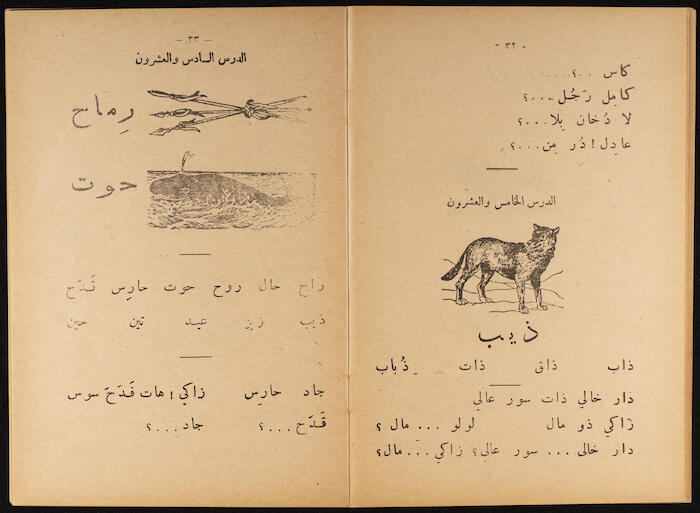 - ٣٢ -
كاس ...؟
كامِل رَجُل ...؟
لا دُخان بِلا ...؟
عادِل! دُر مِن ...؟
الدرس الخامس والعشرون
ذيب
ذاب ذاق ذات ذُباب
دار خالي ذات سور عالي
زاكي ذو مال لولو ... مال ؟
دار خالي ... سور عالي؟ زاكي ... مال؟
- ٣٣ -
الدرس السادس والعشرون
رِماح
حوت
راح حال روح حوت حارِس قَدَح
ذيب زيز عيد تين حين
جاد حارِس زاكي! هات قَدَحَ سوس
قَدَح ...؟ جاد ...؟